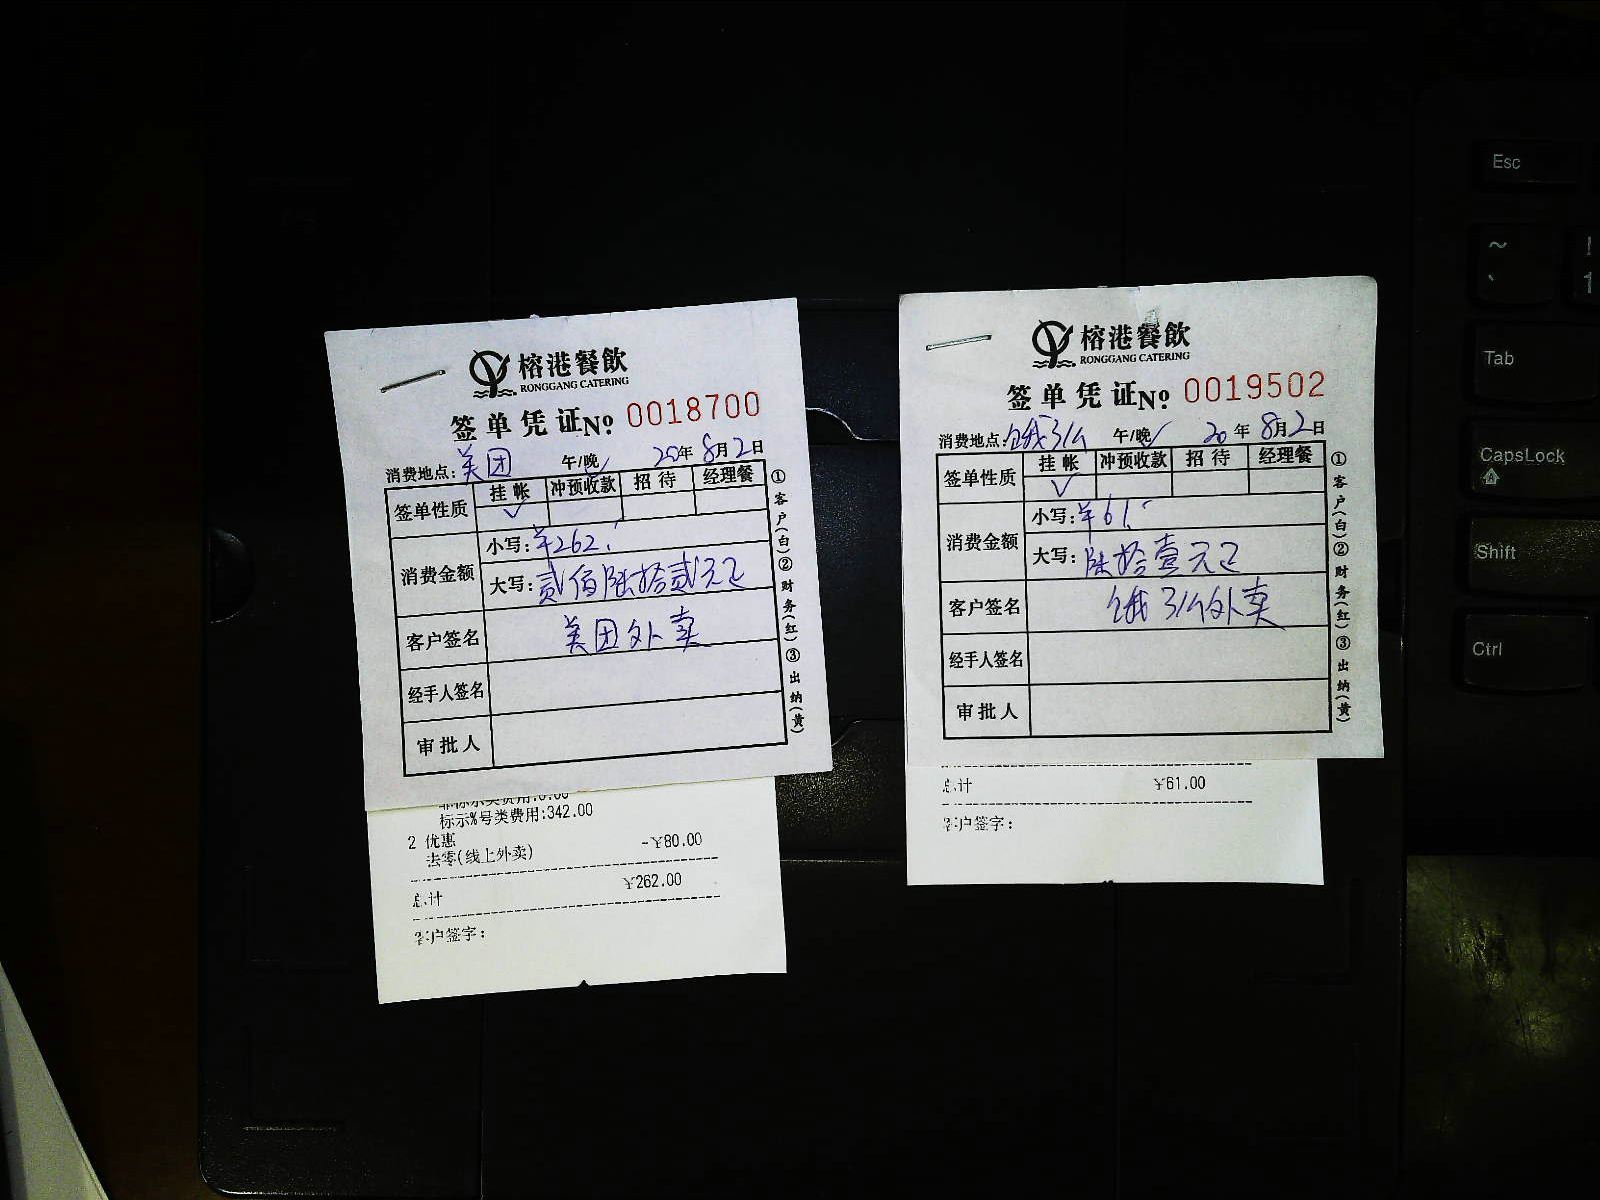 榕港餐飲
RONGGANG CATERING
签单凭证 No 0018700
消费地点:美团 午/晚✓ 20年8月2日
签单性质 挂帐 冲预收款 招待 经理餐
✓
消费金额 小写:¥262.
大写:贰佰陆拾贰元正
客户签名 美团外卖
经手人签名
审批人
①客户(白)②财务(红)③出纳(黄)
标示%号类费用:342.00
2 优惠 -¥80.00
去零(线上外卖)
总计 ¥262.00
客户签字:
榕港餐飲
RONGGANG CATERING
签单凭证 No 0019502
消费地点:饿了么 午/晚✓ 20年8月2日
签单性质 挂帐 冲预收款 招待 经理餐
✓
消费金额 小写:¥61.
大写:陆拾壹元正
客户签名 饿了么外卖
经手人签名
审批人
①客户(白)②财务(红)③出纳(黄)
总计 ¥61.00
客户签字:
Esc
~
`
!
1
Tab
CapsLock
Shift
Ctrl